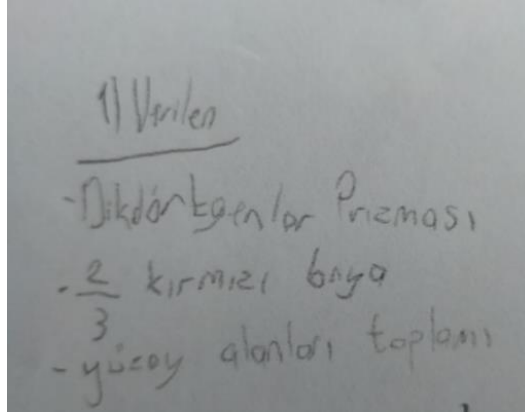 1) Verilen
- Dikdörtgenler Prizması
- 2/3 kırmızı boya
- yüzey alanları toplamı